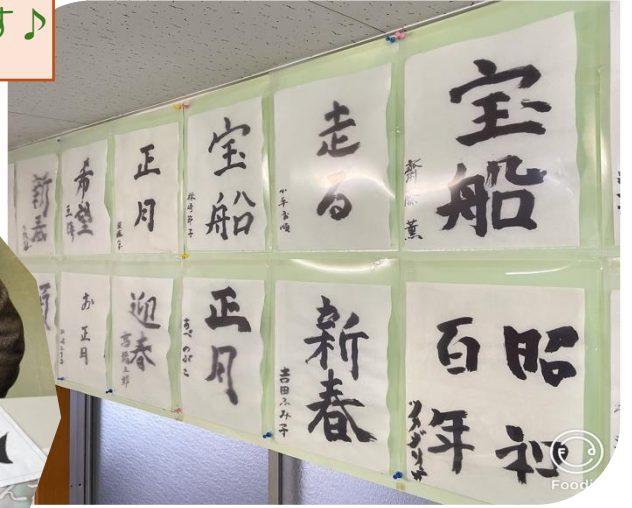 す♪
新春
希望
正月
宝船
走る
宝船
齋藤 薫
お正月
迎春
正月
新春
吉田ふみ子
昭和
百年
Foodi